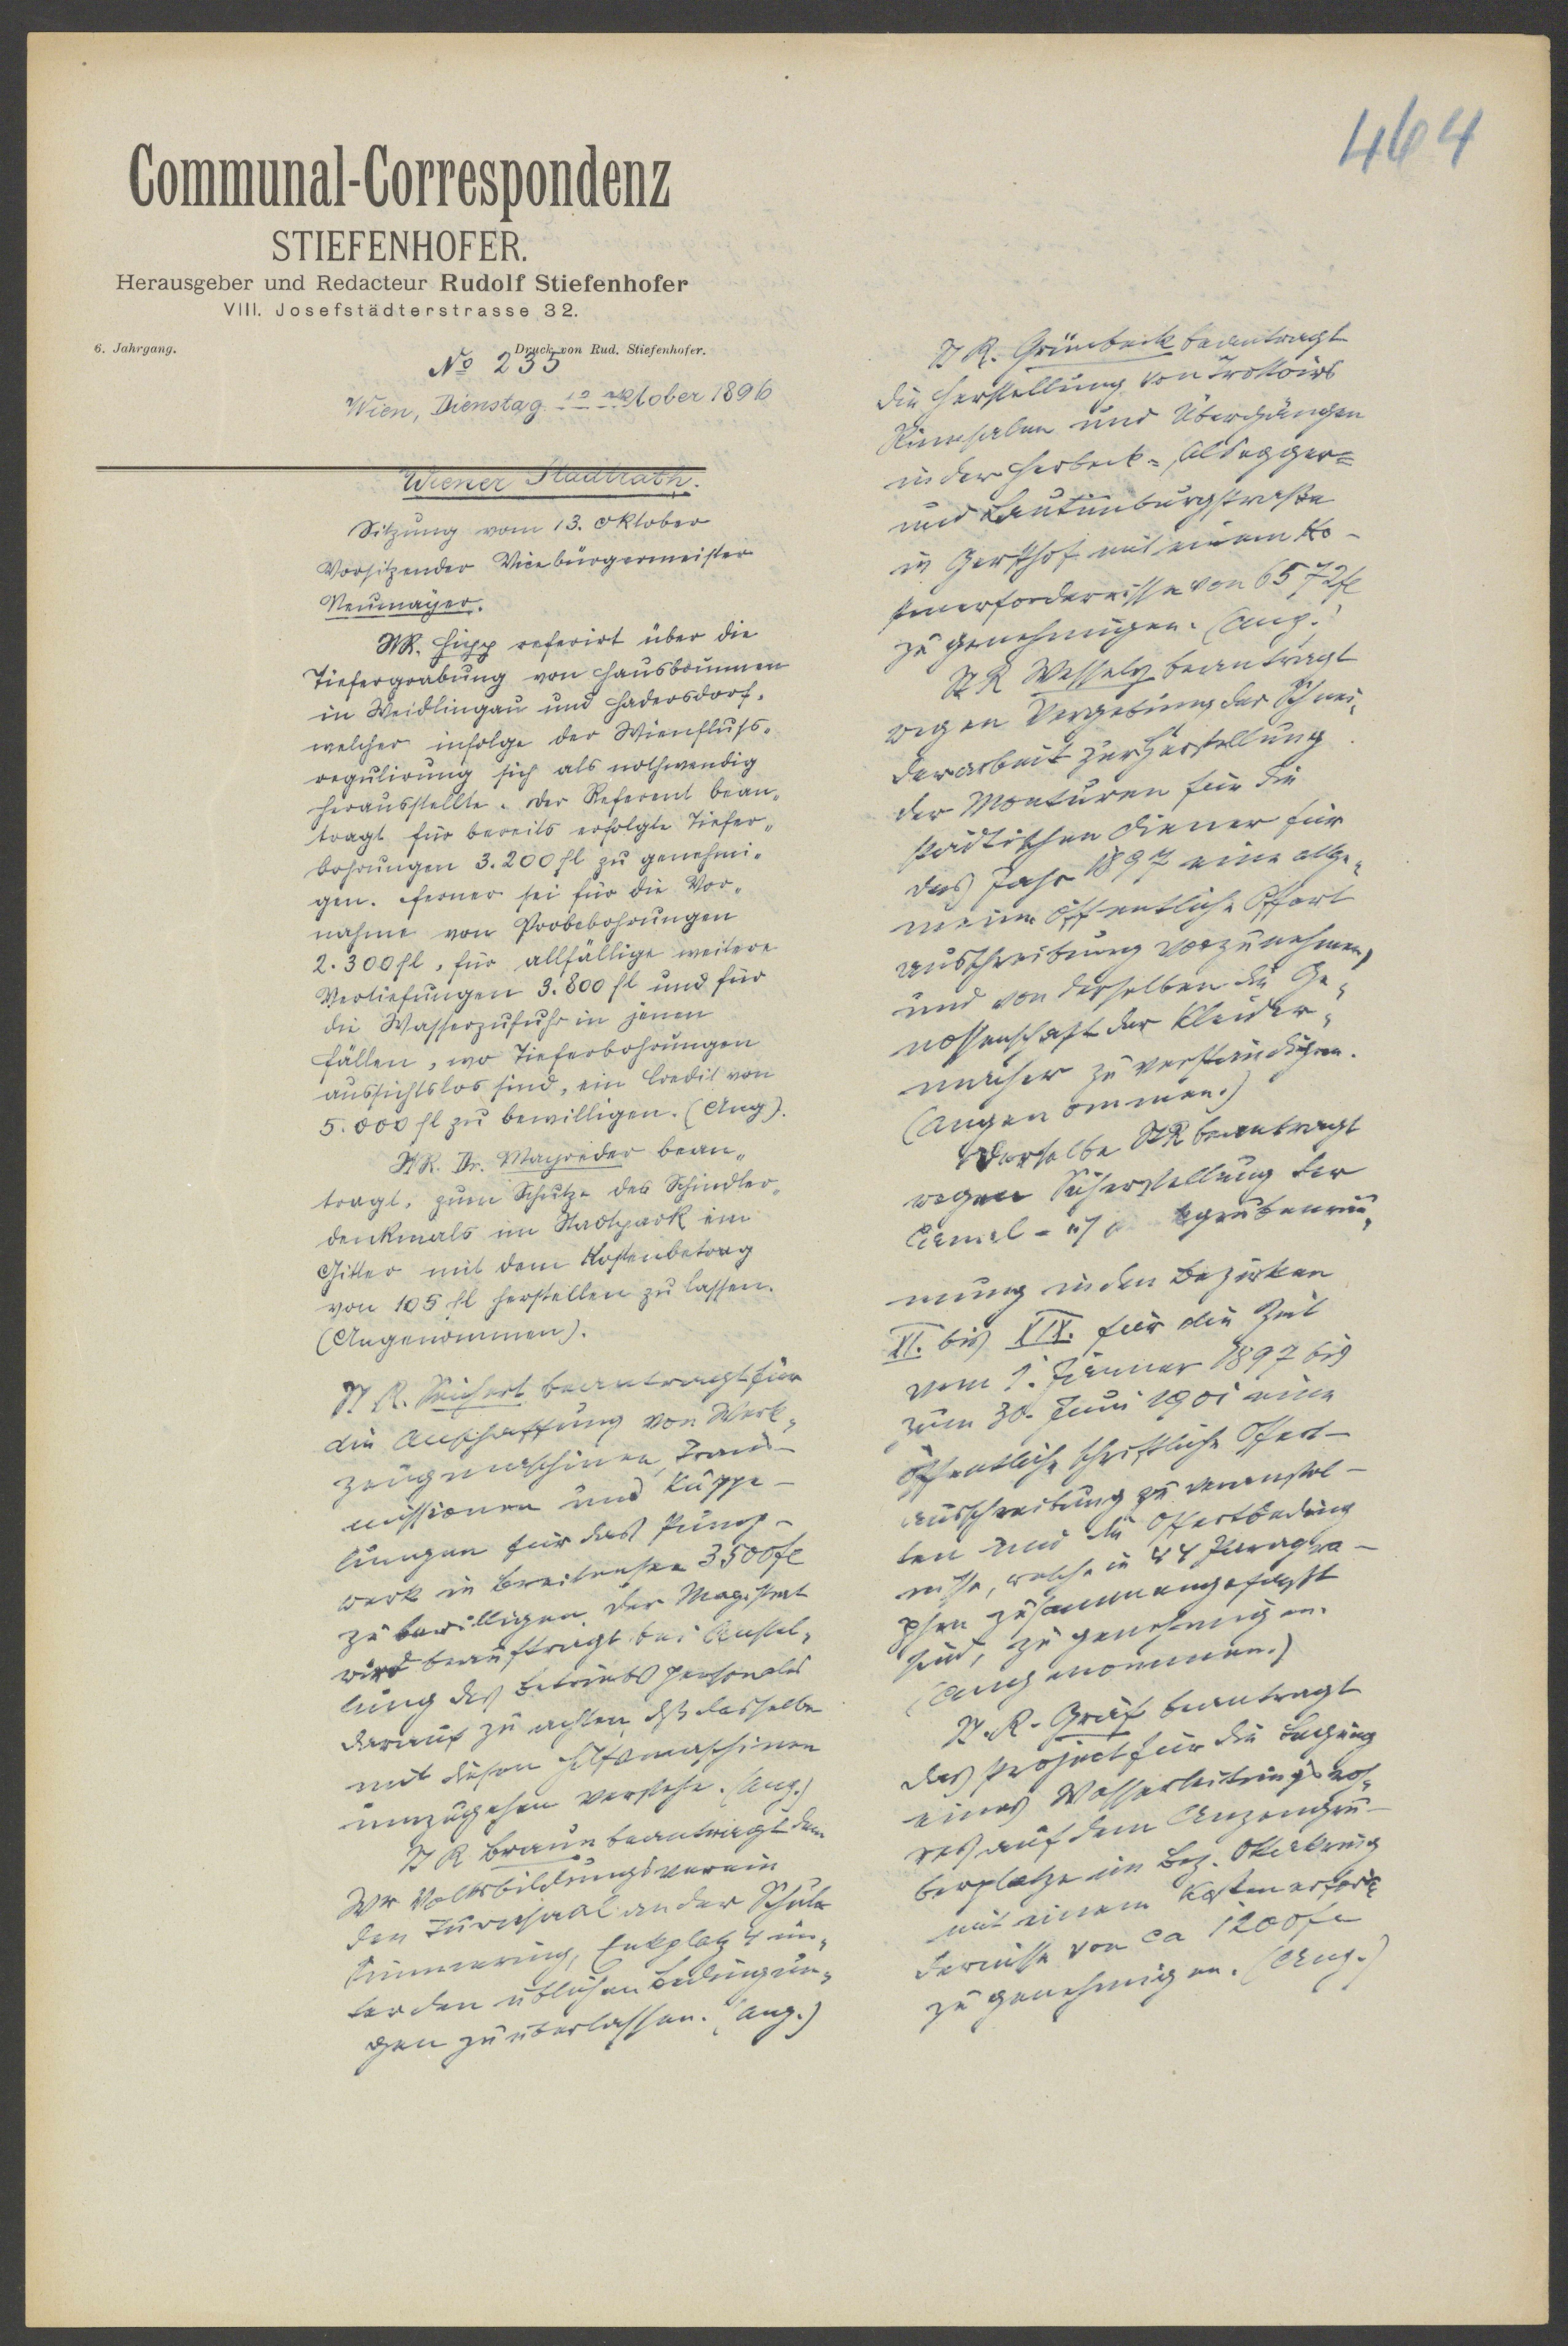 464
Communal-Correspondenz
STIEFENHOFER.
Herausgeber und Redacteur Rudolf Stiefenhofer
VIII. Josefstädterstrasse 32.
6. Jahrgang.
Druck von Rud. Stiefenhofer.
No 235
Wien, Dienstag Oktober 1896
Wiener Stadtrath.
Sitzung vom 13. Oktober
Vorsitzender Vicebürgermeister
Neumayer.
StR. Hipp referirt über die
Tiefergrabung von Hausbrunnen
in Weidlingau und Hadersdorf,
welcher infolge der Wienfluss-
regulirung sich als nothwendig
herausstellte. Der Referent bean-
tragt für bereits erfolgte Tiefer-
bohrungen 3.200 fl zu genehmi-
gen. Ferner sei für die Vor-
nahme von Probebohrungen
2.300 fl, für allfällige weitere
Vertiefungen 3.800 fl und für
die Wasserzufuhr in jenen
Fällen, wo Tieferbohrungen
aussichtslos sind, ein Credit von
5.000 fl zu bewilligen. (Ang).
StR. Dr. Mayreder bean-
tragt, zum Schutze des Schindler-
denkmals im Stadtpark ein
Gitter mit dem Kostenbetrag
von 105 fl herstellen zu lassen.
(Angenommen).
St R. Seichert beantragt für
die Anschaffung von Werk-
zeugmaschinen, Trans-
missionen und Kuppe-
lungen für das Pump-
werk in Breitensee 3500 fl
zu bewilligen. Der Magistrat
wird beauftragt bei Anstel-
lung des Betriebspersonales
darauf zu achten, dß dasselbe
mit diesen Hilfsmaschinen
umzugehen verstehe. (Ang.)
St R Braun beantragt dem
Wr Volksbildungsverein
den Turnsaal an der Schule
Simmering, Enkplatz 4 un-
ter den üblichen Bedingun-
gen zu überlassen. (Ang.)
St R. Grünbeck beantragt
die Herstellung von Trottoirs
Rinnsalen und Übergängen
in der Herbeck-, Alsegger-
und Lautenburgstraße
in Gersthof mit einem Ko-
stenerfordernisse von 6572 fl
zu genehmigen. (Ang.)
St R Wessely beantragt
wegen Vergebung der Schnei-
derarbeit zur Herstellung
der Monturen für die
städtischen Diener für
das Jahr 1897 eine allge-
meine öffentliche Offert
ausschreibung vorzunehmen,
und von derselben die Ge-
nossenschaft der Kleider-
macher zu verständigen.
(Angenommen.)
Derselbe StR beantragt
wegen Sicherstellung der
Canal- u grubenräu-
mung in den Bezirken
XI. bis XIX. für die Zeit
vom 1. Jänner 1897 bis
zum 30. Juni 1901 eine
öffentliche schriftliche Offert-
ausschreibung zu veranstal-
ten und die Offertbeding
nisse, welche in 44 Paragra-
phen zusammengefaßt
sind, zu genehmigen.
(Angenommen.)
St. R. Gräf beantragt
das Project für die Legung
eines Wasserleitungsroh-
res auf dem Anzengru-
berplatze im Bez. Ottakring
mit einem Kostenerfor-
dernisse von ca 1200 fl
zu genehmigen. (Ang.)